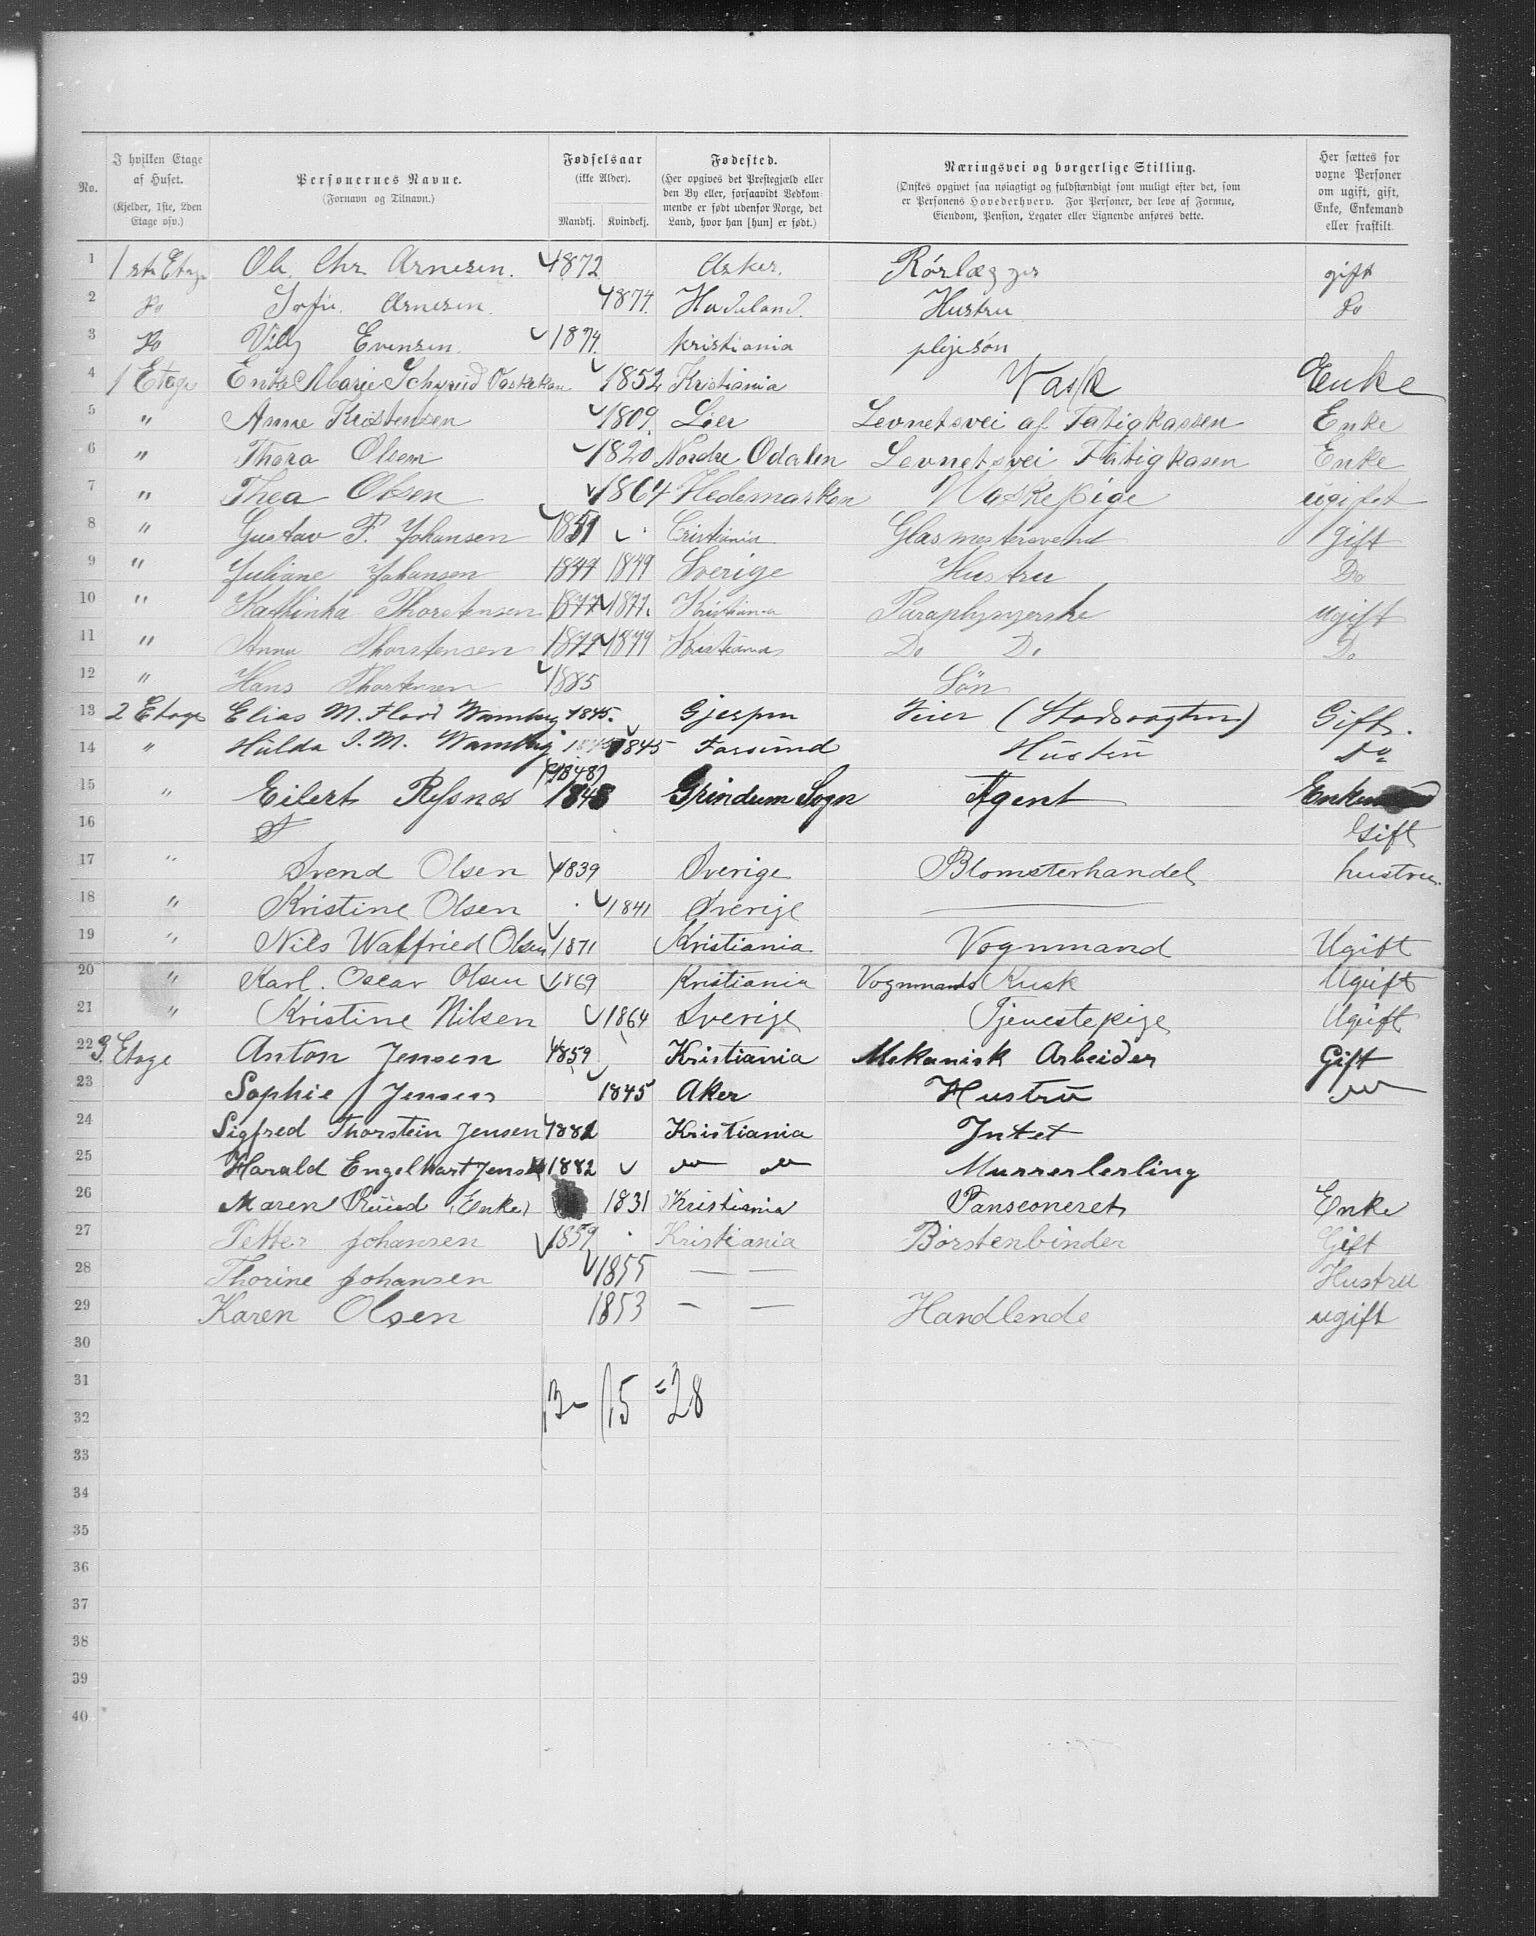 No.
I hvilken Etage af Huset.
(Kjelder, 1ste, 2den Etage osv.)
Personernes Navne.
(Fornavn og Tilnavn.)
Fødselsaar
(ikke Alder).
Mandkj. Kvindekj.
Fødested.
(Her opgives det Prestegjæld eller den By eller, forsaavidt Vedkommende er født udenfor Norge, det Land, hvor han [hun] er født.)
Næringsvei og borgerlige Stilling.
(Ønskes opgivet saa nøiagtigt og fuldstændigt som muligt efter det, som er Personens Hovederhverv. For Personer, der leve af Formue, Eiendom, Pension, Legater eller Lignende anføres dette.
Her sættes for voxne Personer om ugift, gift, Enke, Enkemand eller fraskilt.
1 1ste Etage Ole Chr Arnesen. 1872 Asker. Rörlægger gift
2 Do Sofie Arnesen. 1874. Hadeland. Hustru Do
3 Do Evensen. 1874. Kristiania plejesön
4 1 Etage Enke Marie Schmid 1852 Kristiania Vask Enke
5 " Anne Kristensen 1809. Lier Levnetsvei af Fatigkassen Enke
6 " Thora Olsen 1820 Nordre Odalen Levnetsvei Fatigkasen Enke
7 " Thea Olsen 1864 Hedemarken Vaskepige ugift
8 " Gustav F. Johansen 1851 Cristiania Glasmestersvend gift
9 " Juliane Johansen 1849 1849 Sverige Hustru Do
10 " Kathinka Thorstensen 1877 1877. Kristiania Paraplysyerske ugift
11 " Anna Thorstensen 1879 1879 Kristiania Do Do Do
12 " Hans Thorstensen 1885 Sön
13 2 Etage Elias M. Flood Wamberg 1845. Gjerpen Feier (Stadsvagten) Gift.
14 " Hulda J. M. Wamberg 1845 Farsund Hustru Do
(1848)
15 " Eilert Rysnes 1848 Grindum Sogn Agent
16 Gift
17 " Svend Olsen 1839 Sverige Blomsterhandel hustru.
18 " Kristine Olsen 1841 Sverige
19 " Nils Walfried Olsen 1871 Kristiania Vognmand Ugift
20 " Karl. Oscar Olsen 1869 Kristiania Vognmands Kusk Ugift
21 " Kristine Nilsen 1864 Sverige Tjenestepige Ugift
22 3. Etage Anton Jensen 1859 Kristiania Mekanisk Arbeider Gift
23 Sophie Jensen 1845 Aker Hustru
24 Sigfred Thorstein Jensen 1882 Kristiania Intet
25 Harald Engelhart Jensen 1882 Murrerlerling
26 Maren Ruud (Enke) 1831 Kristiania Panseoneret Enke
27 Petter Johansen 1859 Kristiania Börstenbinder Gift
28 Thorine Johansen 1855 — — Hustru
29 Karen Olsen 1853 — — Handlende ugift
30
31
13 - 15 = 28
32
33
34
35
36
37
38
39
40